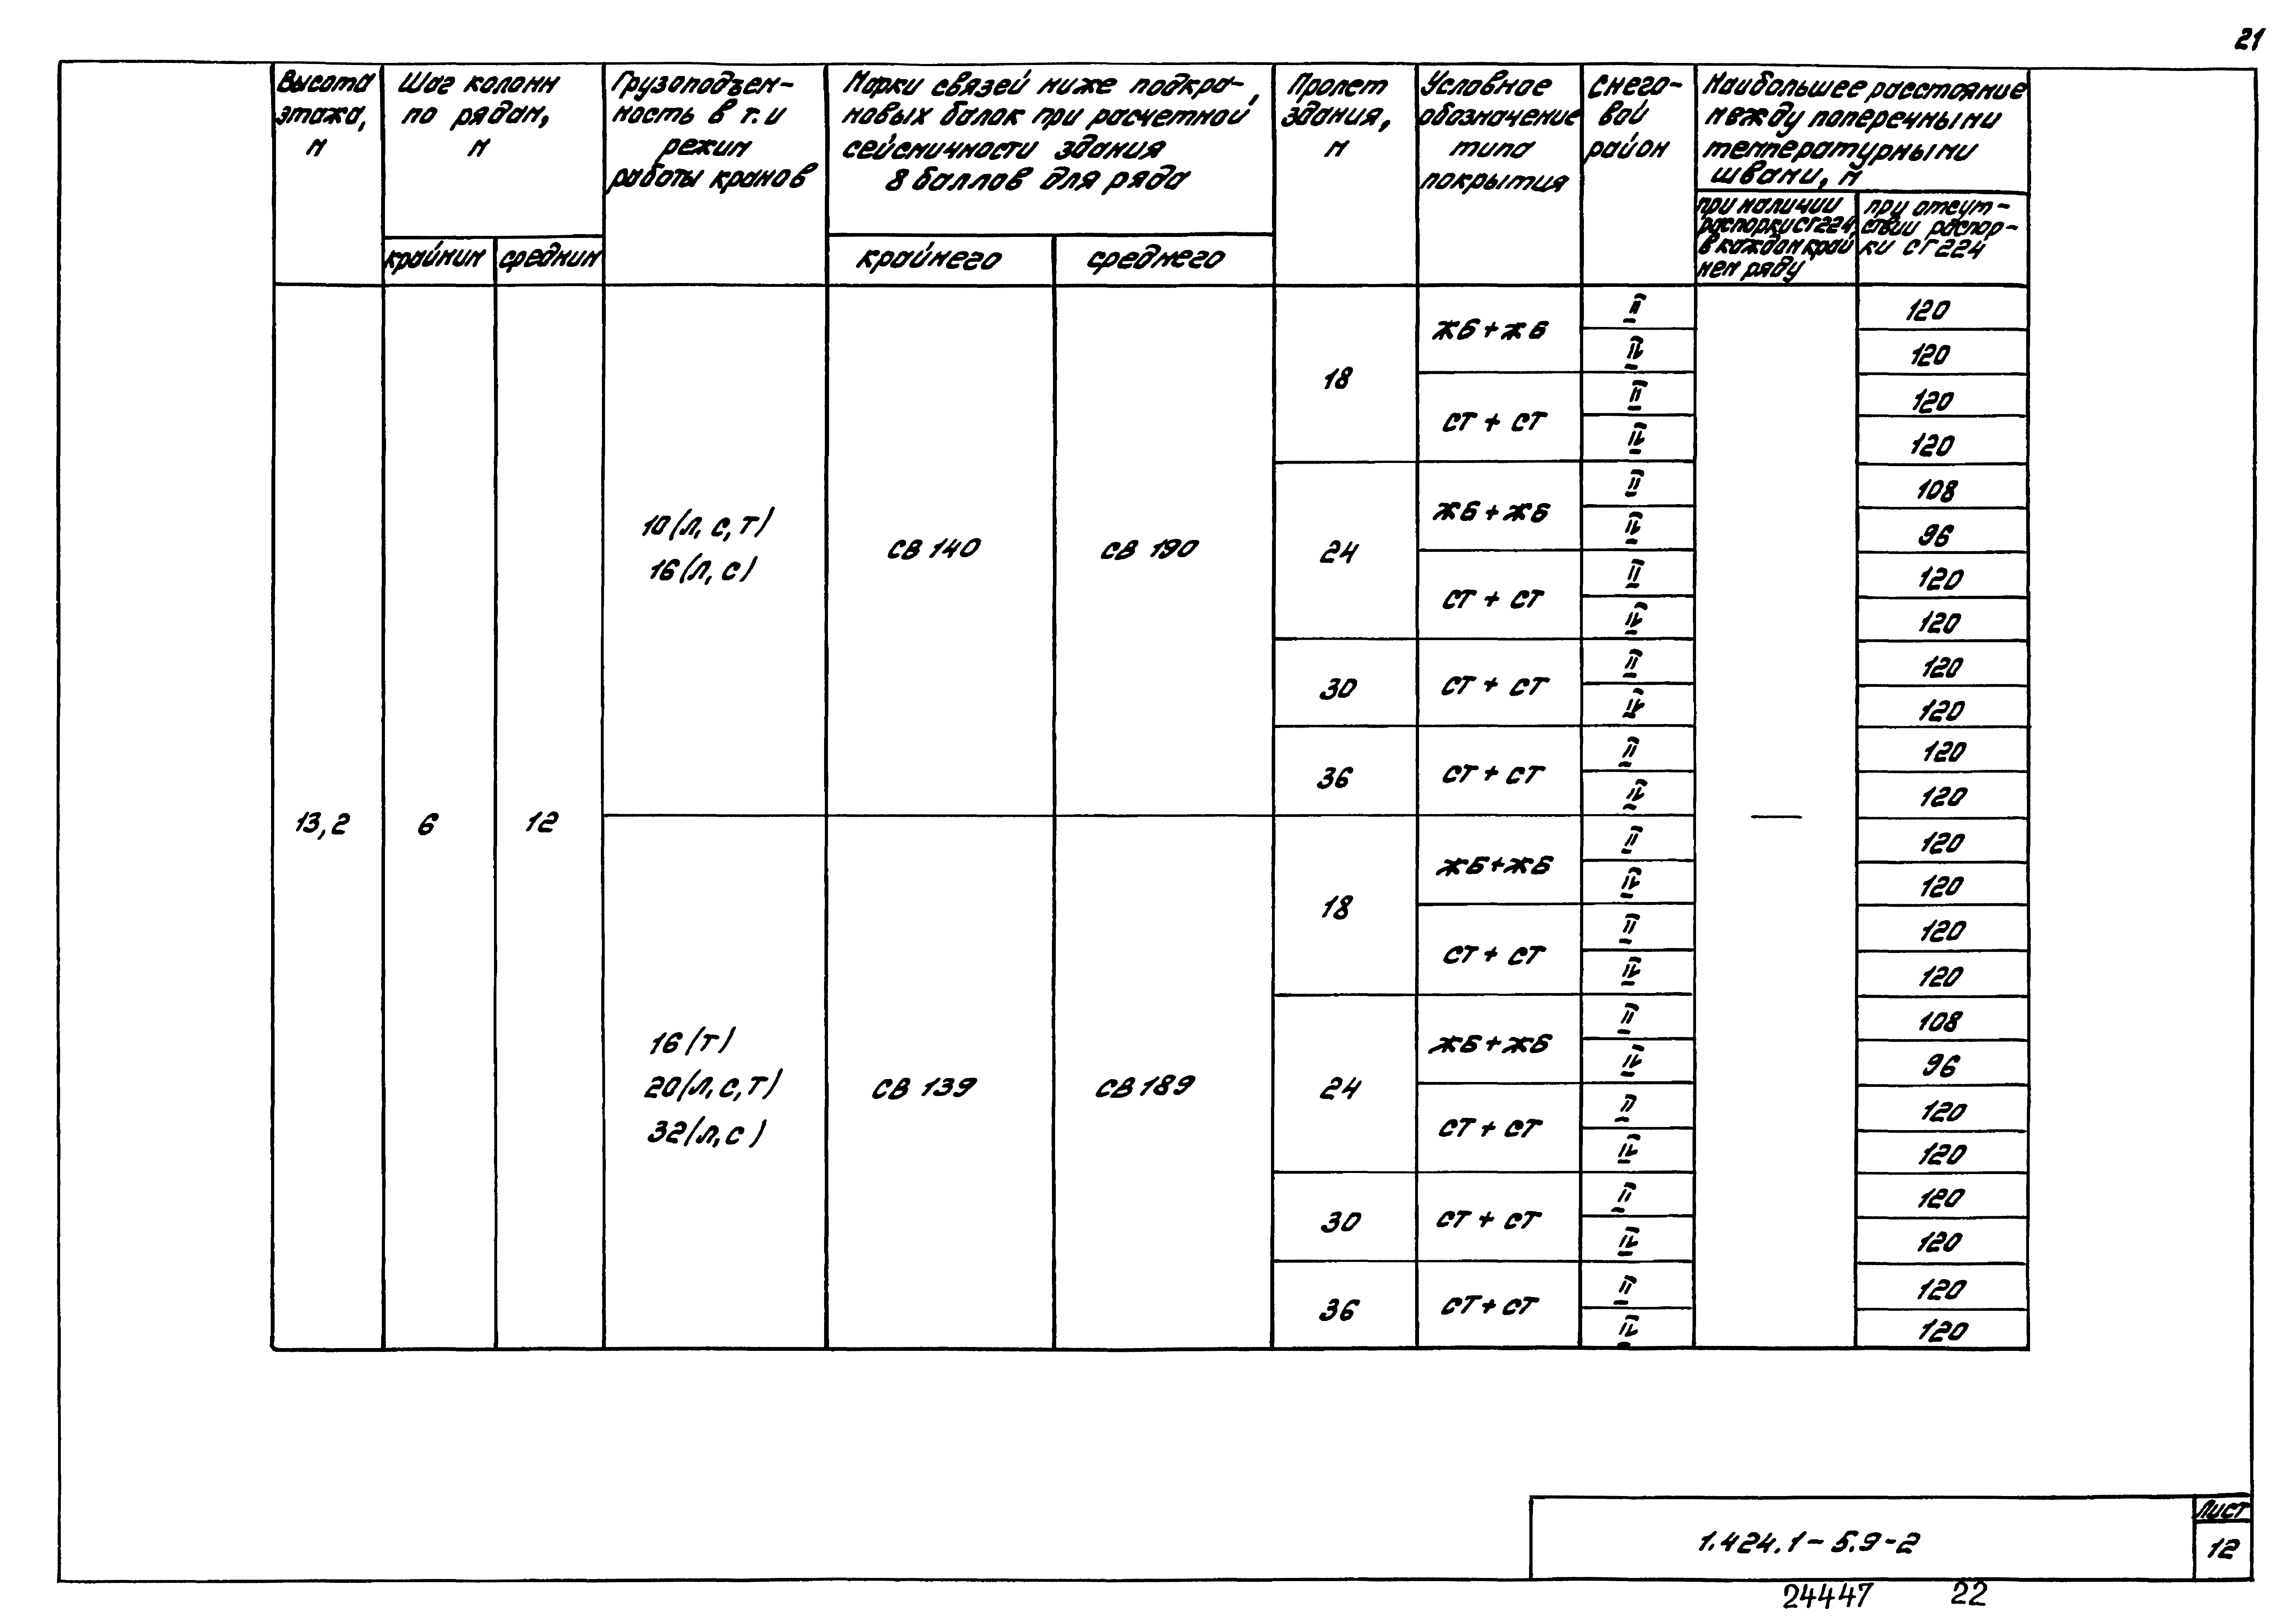 21
Высота этажа, м
Шаг колонн по рядам, м
Грузоподъем-ность в т. и режим работы кранов
Марки связей ниже подкра-новых балок при расчетной сейсмичности здания 8 баллов для ряда
Пролет здания, м
Условное обозначение типа покрытия
Снего-вой район
Наибольшее расстояние между поперечными температурными швами, м
крайним
средним
крайнего
среднего
при наличии распорки СГ224, в каждом край нем ряду
при отсут-ствии распор-ки СГ224
13,2
6
12
10(л, с, т)
16(л, с)
СВ 140
СВ 190
18
ЖБ + ЖБ
II 120
IV 120
СТ + СТ
II 120
IV 120
24
ЖБ + ЖБ
II 108
IV 96
СТ + СТ
II 120
IV 120
30
СТ + СТ
II 120
IV 120
36
СТ + СТ
II 120
IV 120
—
16 (т)
20(л, с, т)
32(л, с)
СВ 139
СВ 189
18
ЖБ+ЖБ
II 120
IV 120
СТ + СТ
II 120
IV 120
24
ЖБ+ЖБ
II 108
IV 96
СТ + СТ
II 120
IV 120
30
СТ + СТ
II 120
IV 120
36
СТ + СТ
II 120
IV 120
1.424.1-5.9-2
Лист
12
24447 22